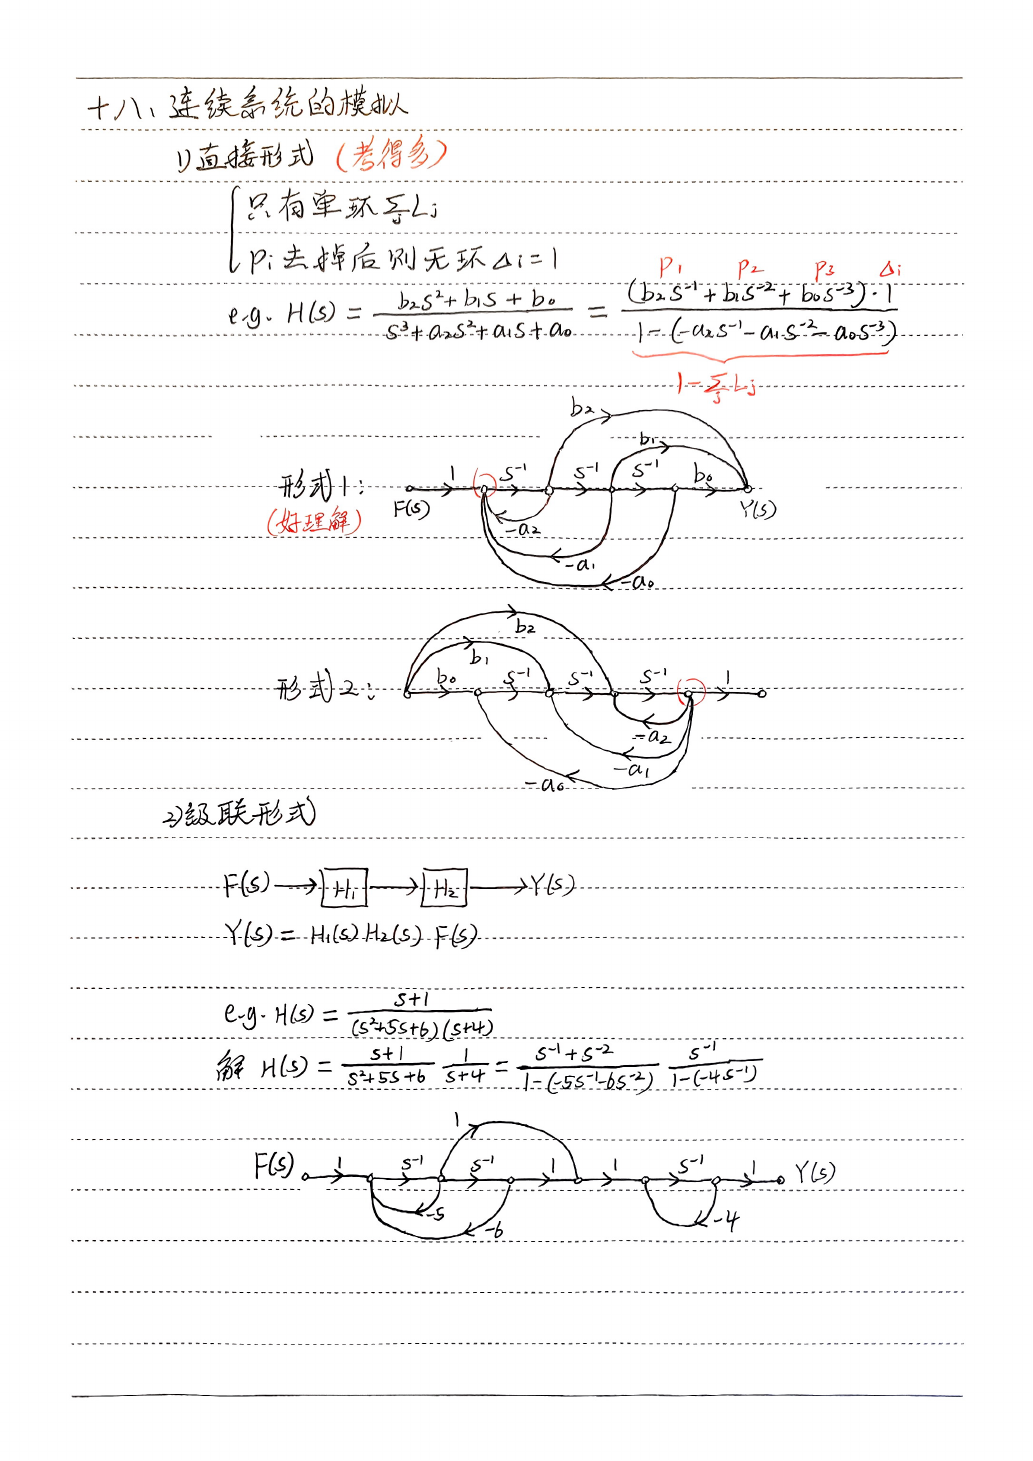 十八、连续系统的模拟
1) 直接形式 (考得多)
只有单环 ∑j Lj
Pi 去掉后则无环 Δi = 1
P1 P2 P3 Δi
e.g. H(s) = (b2s²+b1s+b0)/(s³+a2s²+a1s+a0) = ((b2s⁻¹+b1s⁻²+b0s⁻³)·1)/(1-(-a2s⁻¹-a1s⁻²-a0s⁻³))
1-∑j Lj
b2
b1
形式1: 1 s⁻¹ s⁻¹ s⁻¹ b0
F(s) Y(s)
(好理解) -a2
-a1
-a0
b2
b1
形式2: b0 s⁻¹ s⁻¹ s⁻¹ 1
-a2
-a1
-a0
2) 级联形式
F(s) → H1 → H2 → Y(s)
Y(s) = H1(s) H2(s) F(s)
e.g. H(s) = (s+1)/((s²+5s+6)(s+4))
解 H(s) = (s+1)/(s²+5s+6) 1/(s+4) = (s⁻¹+s⁻²)/(1-(-5s⁻¹-6s⁻²)) s⁻¹/(1-(-4s⁻¹))
1
F(s) 1 s⁻¹ s⁻¹ 1 1 s⁻¹ 1 Y(s)
-5 -6 -4